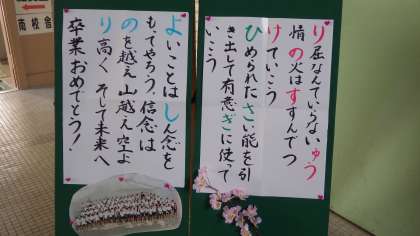 り屈なんていらないゆう
情の火はすすんでつ
けていこう
ひめられたさい能を引
き出して有意ぎに使って
いこう
よいことはしん念を
もてやろう。信念は
のを越え山越え空よ
り高く そして未来へ
卒業おめでとう！
南校舎